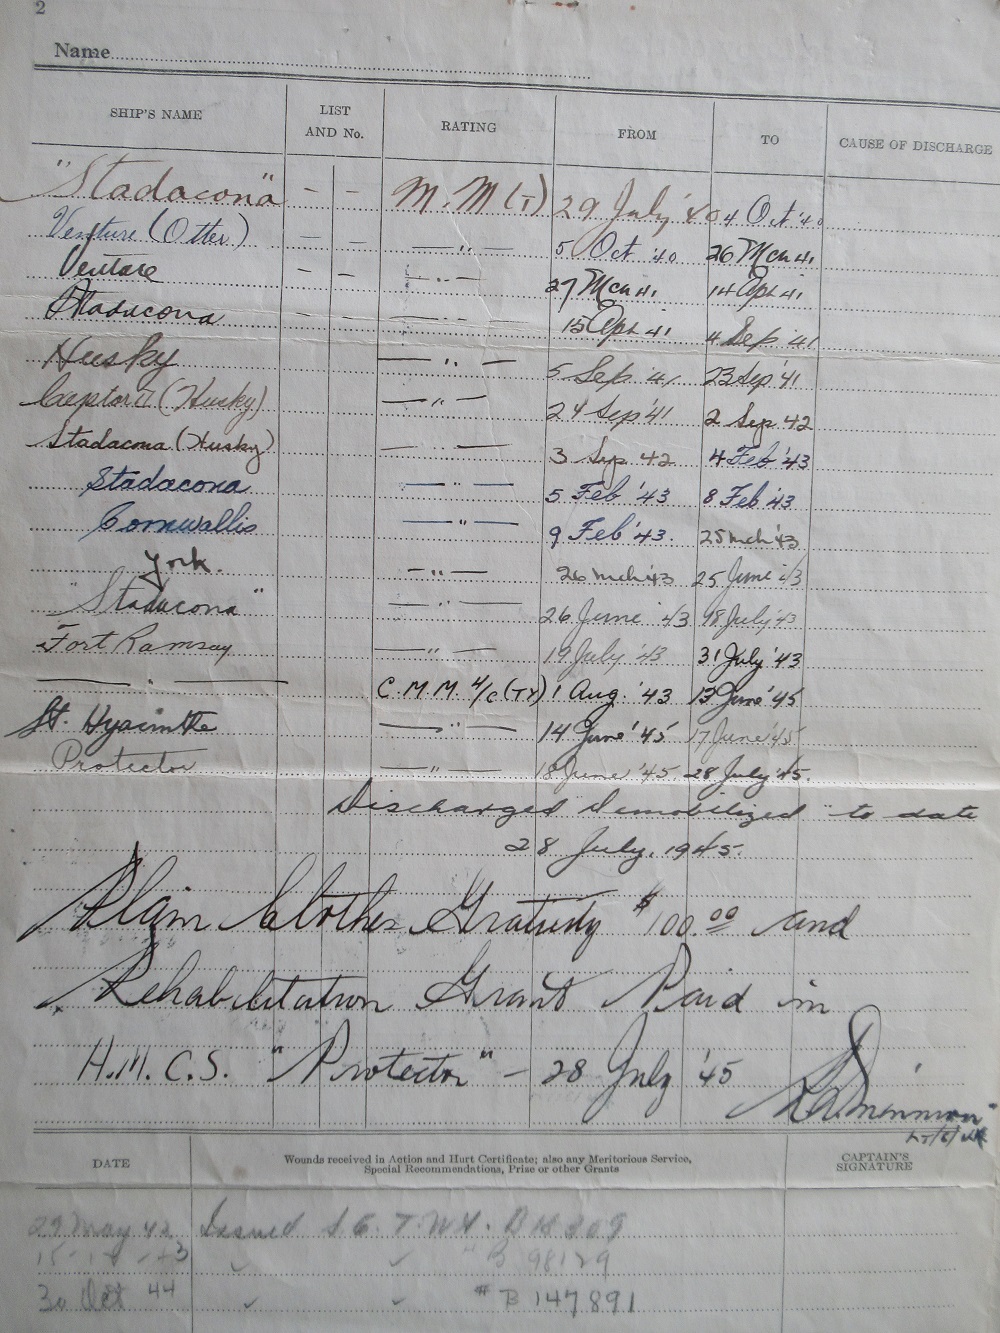 2
Name
SHIP'S NAME LIST AND No. RATING FROM TO CAUSE OF DISCHARGE
"Stadacona" – – M.M (T) 29 July '40 4 Oct '40
Venture (Otter) – – — " — 5 Oct '40 26 Mch 41
Venture – – — " — 27 Mch 41 14 Apl 41
Stadacona – – — " — 15 Apl 41 4 Sep '41
Husky — " — 5 Sep '41 23 Sep '41
(Husky) — " — 24 Sep '41 2 Sep 42
Stadacona (Husky) — " — 3 Sep 42 4 Feb '43
Stadacona — " — 5 Feb '43 8 Feb '43
Cornwallis — " — 9 Feb '43. 25 Mch '43
York. — " — 26 Mch 43 25 June 43
"Stadacona" — " — 26 June 43 18 July 43
Fort Ramsay — " — 19 July '43 31 July '43
— " — C.M.M. (TY) 1 Aug. '43 13 June '45
St. Hyacinthe — " — 14 June '45 17 June '45
Protector — " — 18 June '45. 28 July '45.
Discharged Demobilized to date
28 July, 1945.
Plain Clothes Gratuity $100.00 and
Rehabilitation Grant Paid in
H.M.C.S. "Protector" – 28 July '45
DATE Wounds received in Action and Hurt Certificate; also any Meritorious Service, Special Recommendations, Prize or other Grants CAPTAIN'S SIGNATURE
29 May 42 Issued
✓ ✓ " B 98129
30 Oct 44 ✓ ✓ # B 147891